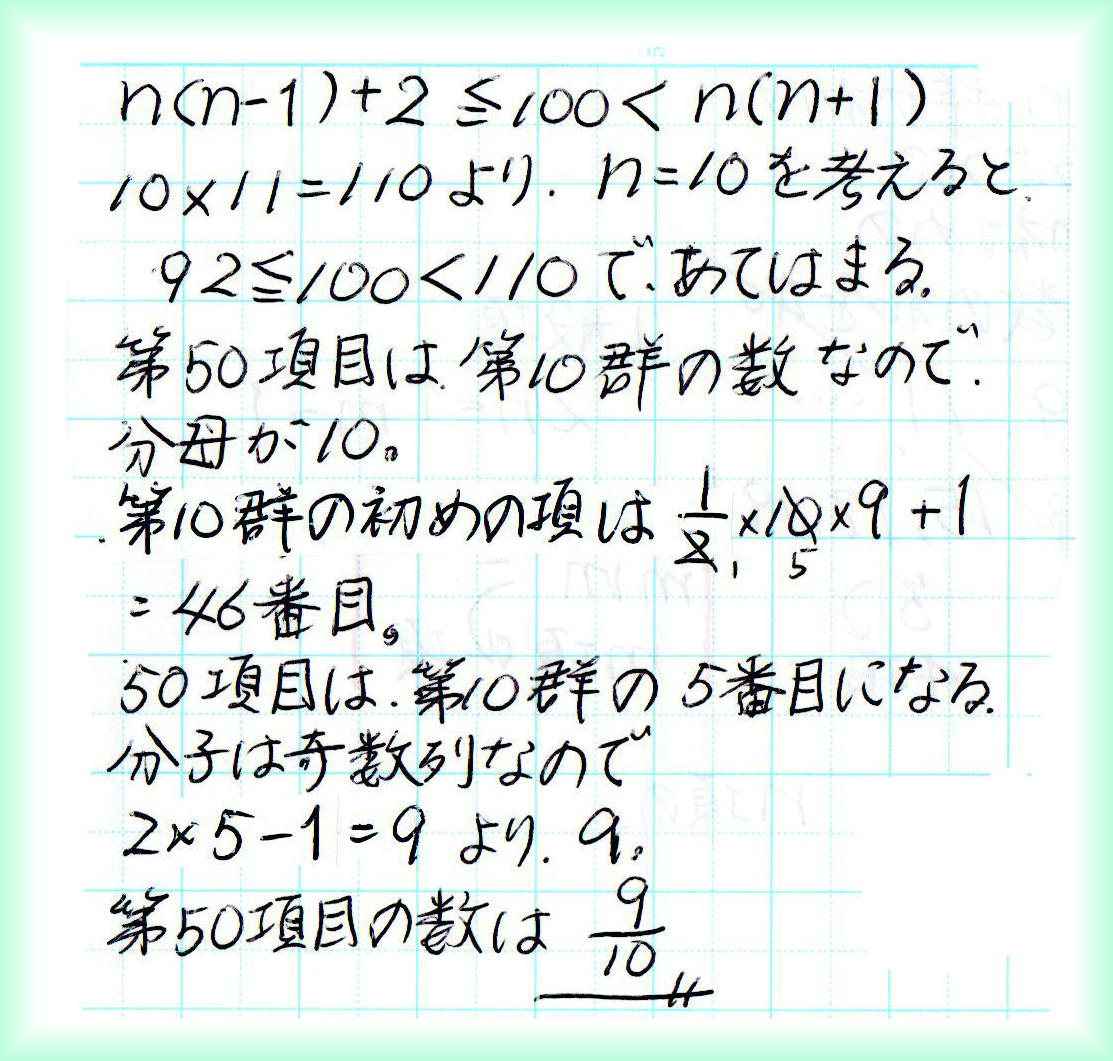 n(n-1)+2≦100<n(n+1)
10×11=110より. n=10を考えると.
92≦100<110で、あてはまる.
第50項目は.第10群の数なので.
分母が10。
第10群の初めの項は 1/2×10×9+1
1 5
=46番目。
50項目は.第10群の5番目になる.
分子は奇数列なので
2×5-1=9 より. 9。
第50項目の数は 9/10